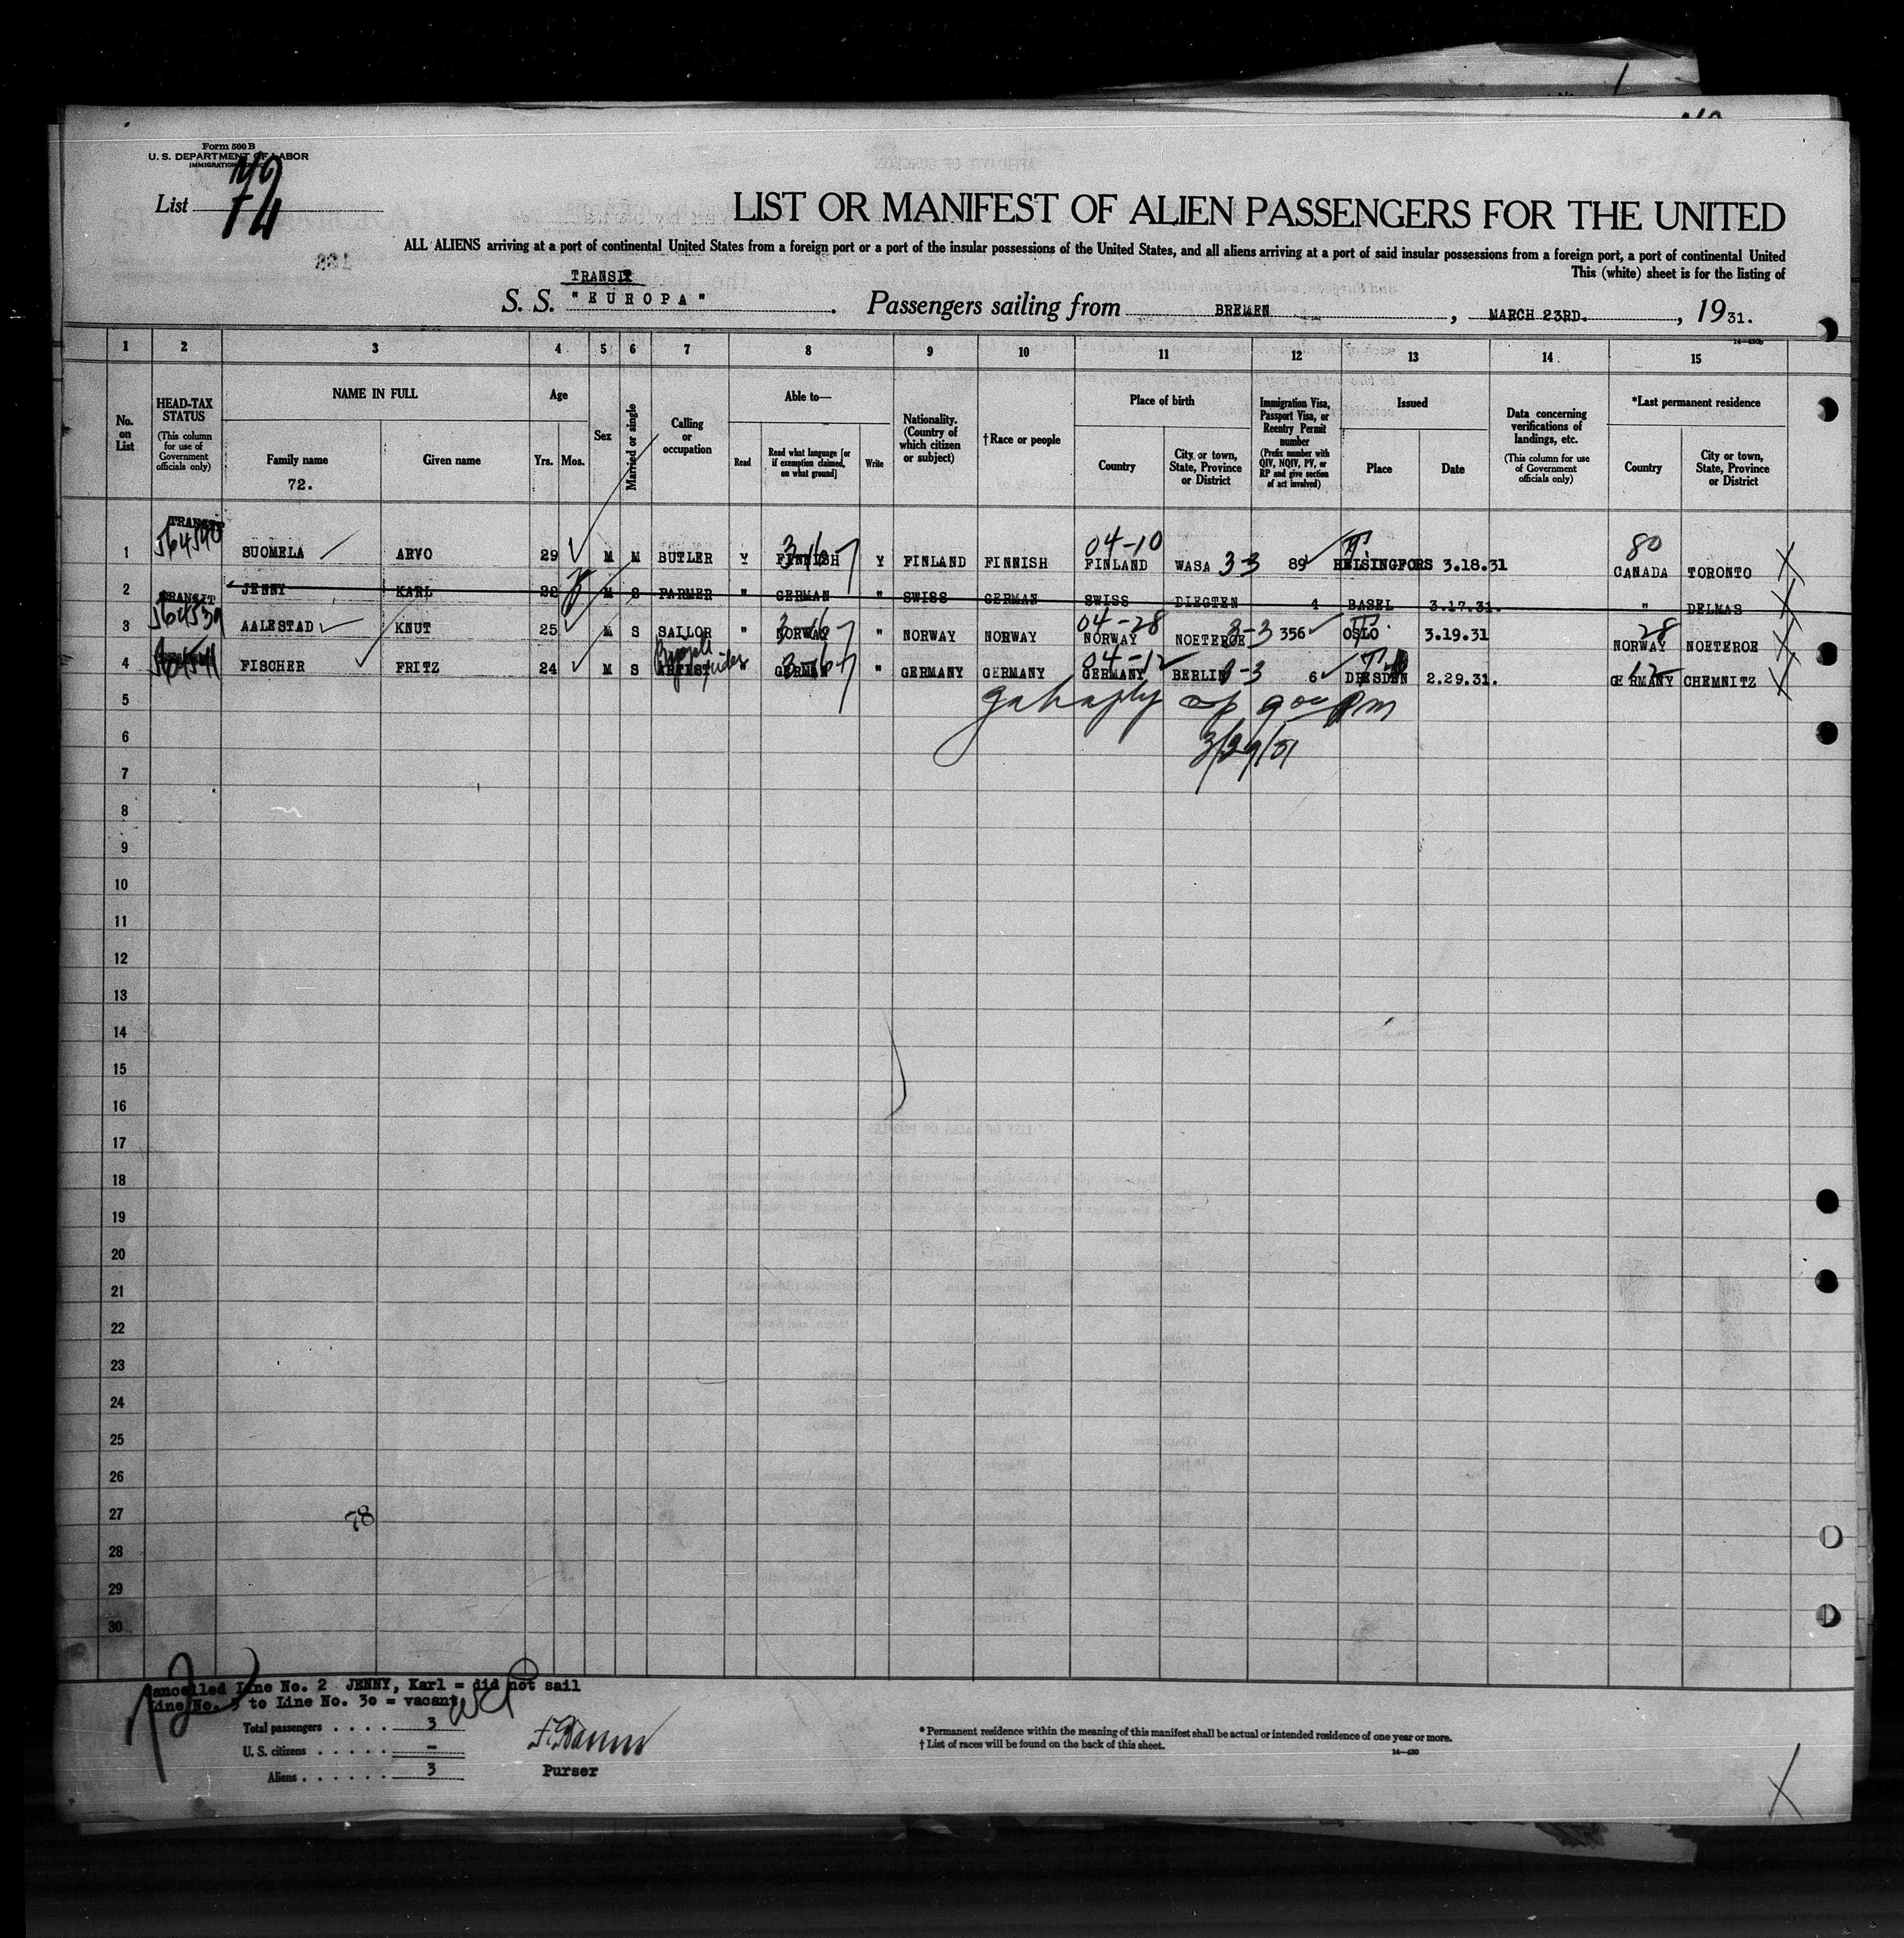 Form 500 B
U. S. DEPARTMENT OF LABOR
IMMIGRATION SERVICE
List
LIST OR MANIFEST OF ALIEN PASSENGERS FOR THE UNITED
ALL ALIENS arriving at a port of continental United States from a foreign port or a port of the insular possessions of the United States, and all aliens arriving at a port of said insular possessions from a foreign port, a port of continental United
This (white) sheet is for the listing of
TRANSIT
S. S. "EUROPA". Passengers sailing from BREMEN, MARCH 23RD., 1931.
1 2 3 4 5 6 7 8 9 10 11 12 13 14 15
No. on List
HEAD-TAX STATUS
(This column for use of Government officials only)
NAME IN FULL
Family name
72.
Given name
Age
Yrs. Mos.
Sex
Married or single
Calling or occupation
Able to—
Read
Read what language [or if exemption claimed, on what ground]
Write
Nationality. (Country of which citizen or subject)
†Race or people
Place of birth
Country
City or town, State, Province or District
Immigration Visa, Passport Visa, or Reentry Permit number
(Prefix number with QIV, NQIV, PV, or RP and give section of act involved)
Issued
Place
Date
Data concerning verifications of landings, etc.
(This column for use of Government officials only)
*Last permanent residence
Country
City or town, State, Province or District
TRANSIT
564540
04-10
80
1 SUOMELA ARVO 29 M M BUTLER Y FINNISH Y FINLAND FINNISH FINLAND WASA 3-3 89 HELSINGFORS 3.18.31 CANADA TORONTO
2 JENNY KARL 22 M S FARMER " GERMAN " SWISS GERMAN SWISS DIEGTEN 4 BASEL 3.17.31. " DELMAS
TRANSIT
564539
04-28
28
3 AALESTAD KNUT 25 M S SAILOR " NORWAG " NORWAY NORWAY NORWAY NOETEROE 3-3 356 OSLO 3.19.31 NORWAY NOETEROE
04-12
12
4 FISCHER FRITZ 24 M S ARTIST " GERMAN " GERMANY GERMANY GERMANY BERLIN 6 DRESDEN 2.29.31. GERMANY CHEMNITZ
3/29/31
5
6
7
8
9
10
11
12
13
14
15
16
17
18
19
20
21
22
23
24
25
26
27
78
28
29
30
Cancelled Line No. 2 JENNY, Karl = did not sail
Line No. 5 to Line No. 3o = vacant
Total passengers . . . . 3
U. S. citizens . . . . . —
Aliens . . . . . . 3
Purser
* Permanent residence within the meaning of this manifest shall be actual or intended residence of one year or more.
† List of races will be found on the back of this sheet.
14—430